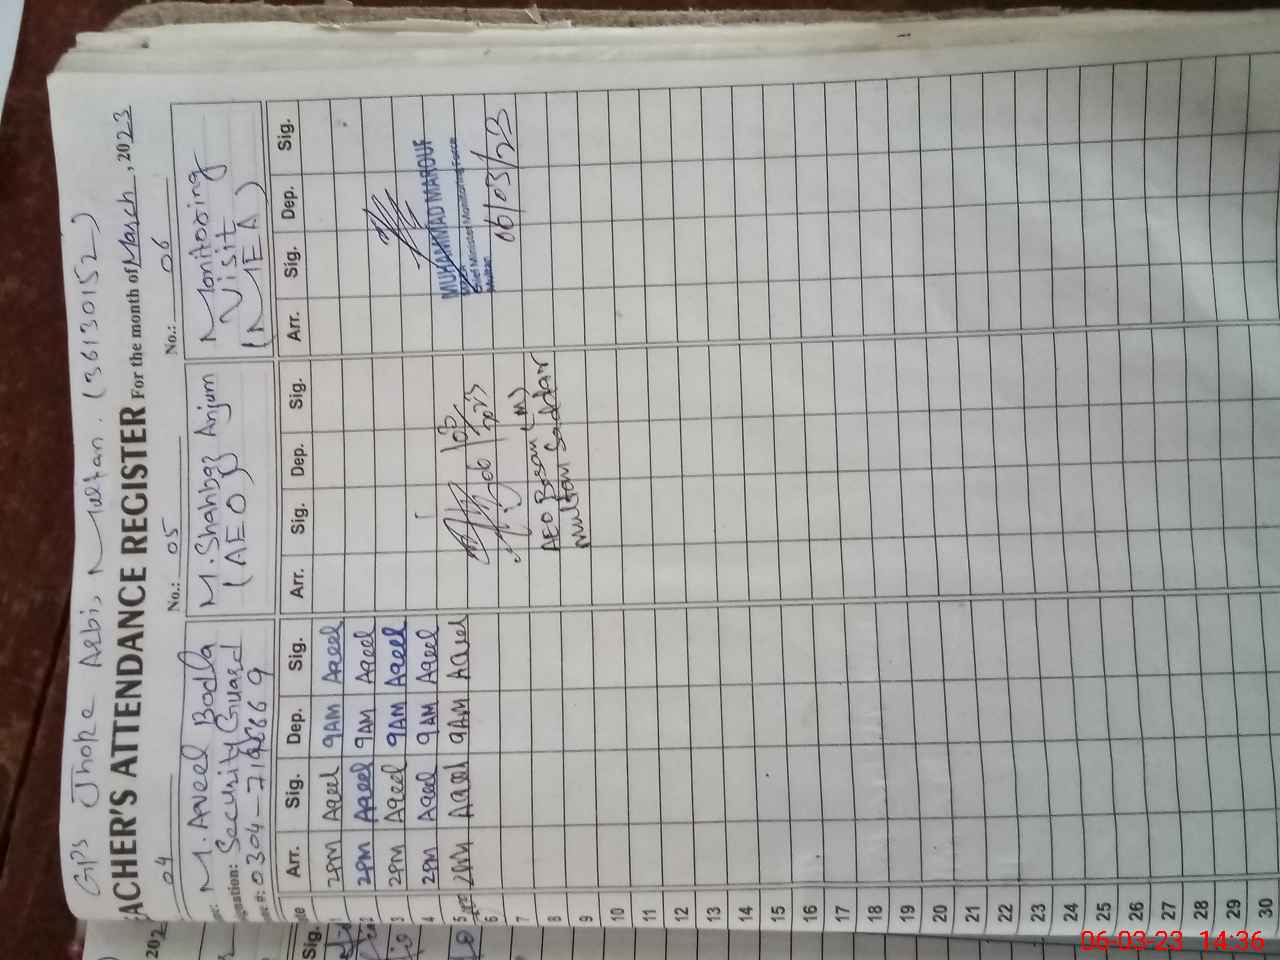 GPS Jhoke Arbi, Multan. (36130152)
ACHER'S ATTENDANCE REGISTER For the month of March, 2023
202
04
No.: 05
No.: 06
M. Aqeel Bodla
Security Guard
M. Shahbaz Anjum
(AEO)
Monitoring
Visit
(MEA)
Sig.
Arr. Sig. Dep. Sig. Arr. Sig. Dep. Sig. Arr. Sig. Dep. Sig.
1 2PM Aqeel 9AM Aqeel
2 2PM Aqeel 9AM Aqeel
3 2PM Aqeel 9AM Aqeel
4 2PM Aqeel 9AM Aqeel
5 2PM Aqeel 9AM Aqeel
6
7
8
9
10
11
12
13
14
15
16
17
18
19
20
21
22
23
24
25
26
27
28
29
30
AEO Bosan (M)
Multan Saddar
MUHAMMAD MAROUF
Chief Minister Monitoring Force
Multan
06/03/23
06-03-23 14:36